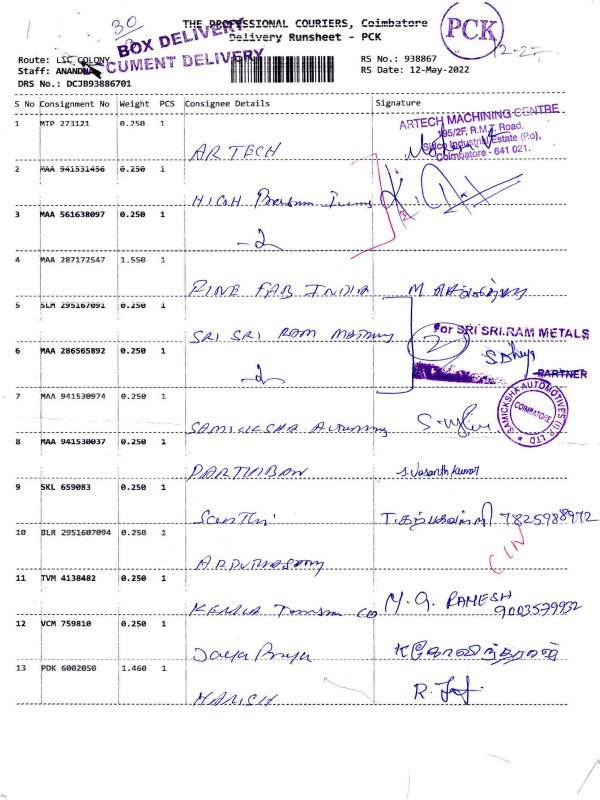 30
THE PROFESSIONAL COURIERS, Coimbatore
BOX DELIVERY
Delivery Runsheet - PCK
PCK
CUMENT DELIVERY
Route: LIC COLONY
RS No.: 938867
Staff: ANANDH
RS Date: 12-May-2022
DRS No.: DCJB93886701
S No Consignment No Weight PCS Consignee Details Signature
1 MTP 273121 0.250 1
ARTECH MACHINING CENTRE
195/2F, R.M.T. Road,
Sidco Industrial Estate (P.o),
Coimbatore - 641 021.
ARTECH
2 MAA 941531456 0.250 1
HIGH
3 MAA 561638097 0.250 1
-2
4 MAA 287172547 1.550 1
PINE FAB INDIA
5 SLM 295167091 0.250 1
SRI SRI RAM
for SRI SRI RAM METALS
2
6 MAA 286565892 0.250 1
PARTNER
-2
7 MAA 941530974 0.250 1
SAMICKSHA AUTOMOTIVES (P) LTD
COIMBATORE
SAMICKSHA
8 MAA 941530037 0.250 1
PARTHIBAN S. Vasanth Kumar
9 SKL 659083 0.250 1
Santhi 7825988972
10 BLR 2951607094 0.250 1
11 TVM 4138482 0.250 1
KERALA M. G. RAMESH
9003579932
12 VCM 759810 0.250 1
Jaya Priya
13 PDK 6002050 1.460 1
HARISH